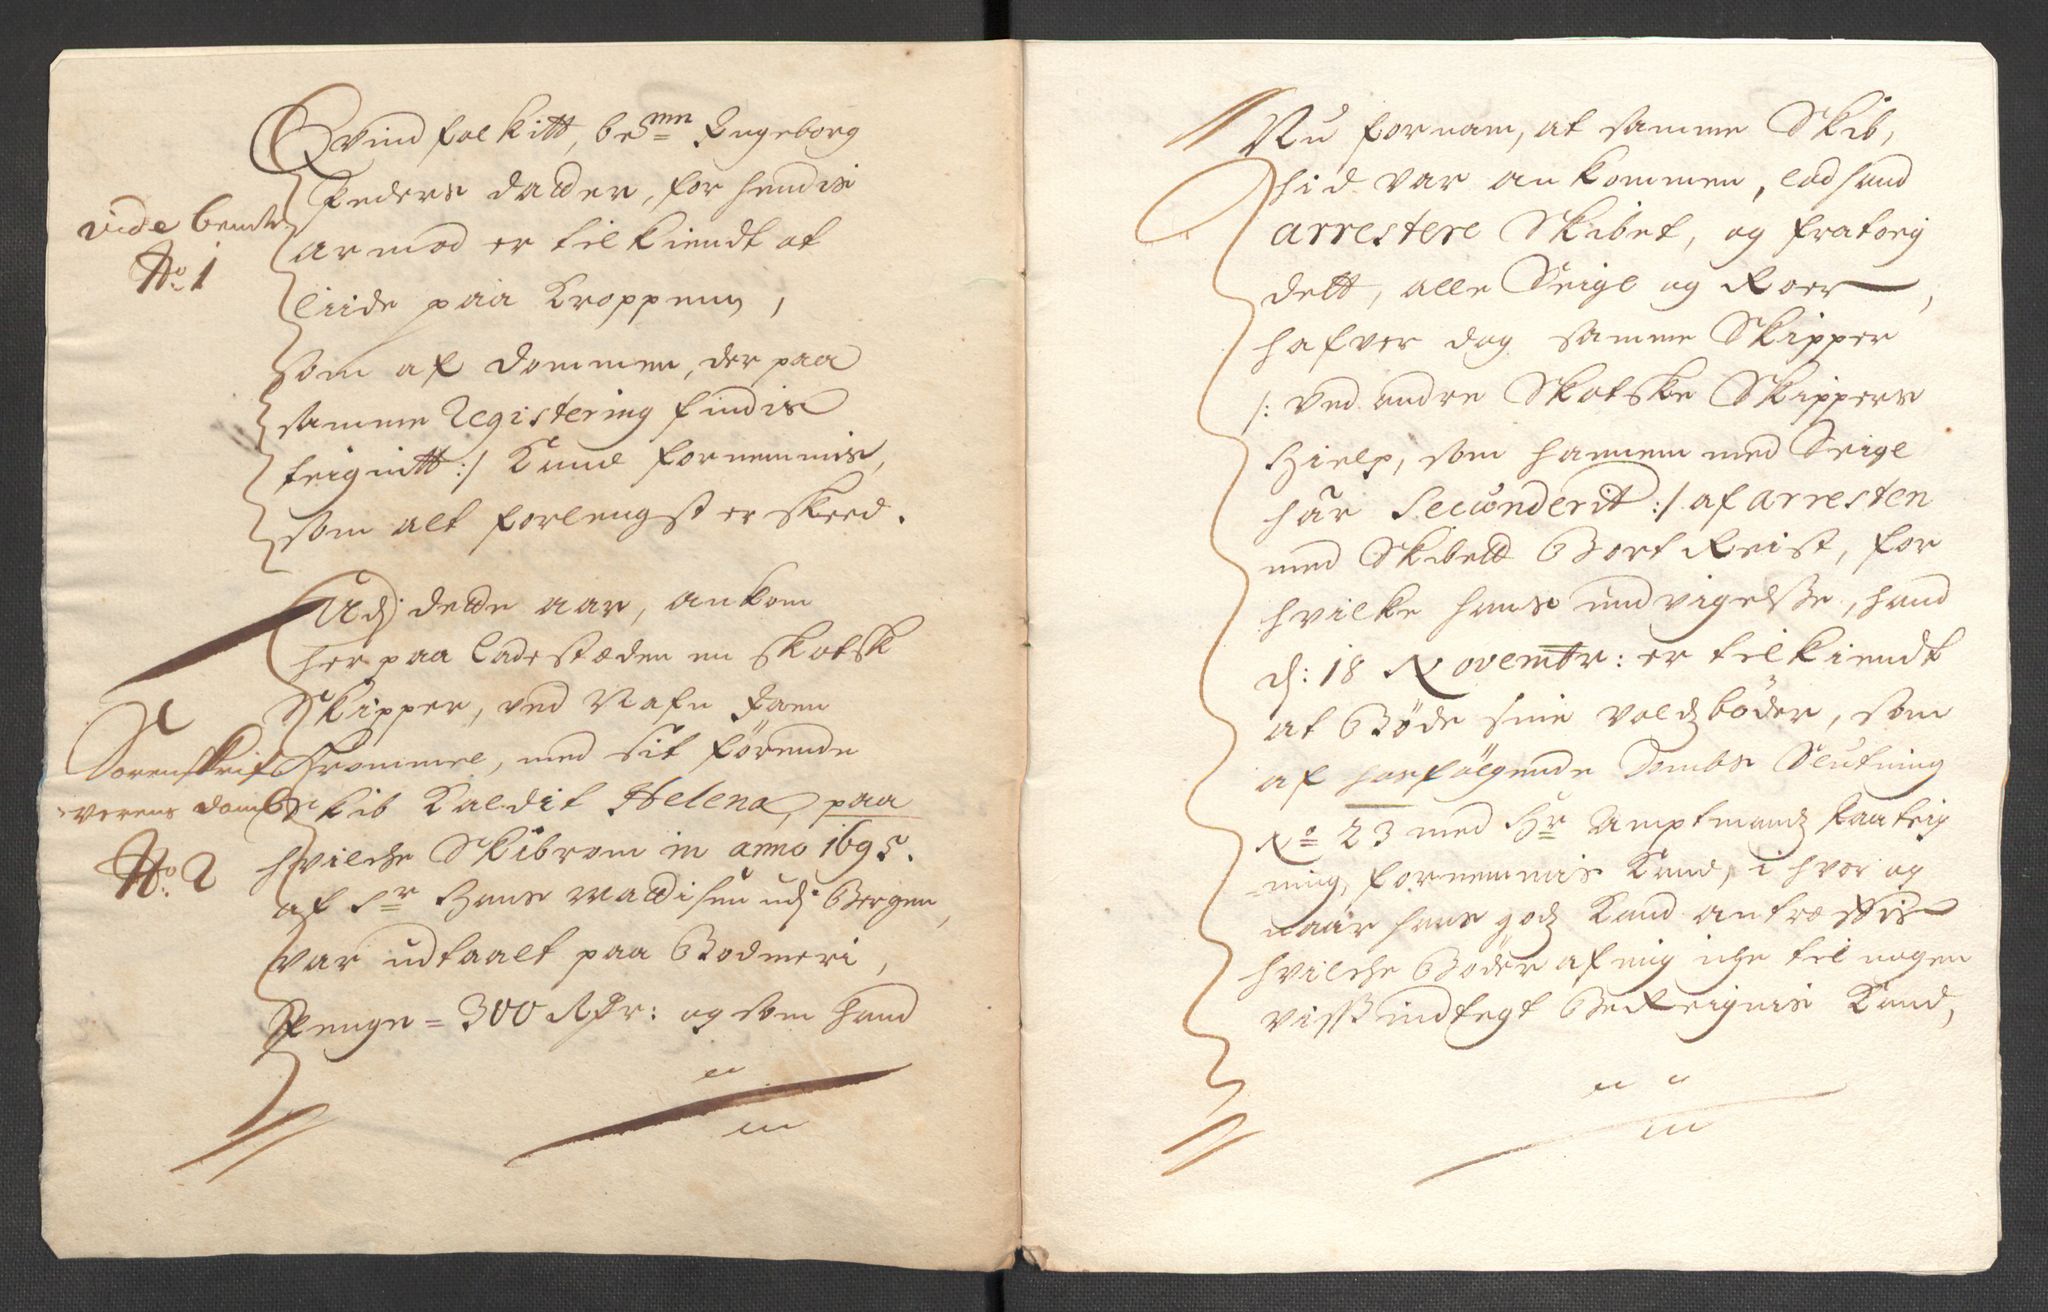 Qvindfolkitt, be:mn Engeborg
Peders datter, for hendis
armod er tilkiendt at
liide paa Kroppenn,
som af dommen, der paa
samme Registering findis
teignitt :/ kund fornemmis,
som alt forlengst er skeed.
vide bemte
No 1
Udj dette aar, ankom
her paa Ladestæden en skotsk
Skipper, ved Nafn
Frommel, med sit førende
Skib Kaldit Helena, paa
hvilche Skibrom in anno 1695.
af Sr Hans Mattisen udj Bergen,
var udtaalt paa Bodmeri,
Penge = 300 Rdr: og som hand
Sorenskrif
verens domb
No 2
Nu fornam, at samme Skib,
hid var ankommen, lod hand
arrestere Skibet, og fratog
dett, alle Seigl og Roer,
hafver dog samme Skipper
/: ved andre Skotske Skippers
Hielp, som hannem med Seigl
har Secunderit :/ af arresten
med Skibett Bort Reist, for
hvilke hans undvigelsse, hand
d: 18 Novembr: er tilkiendt
at Bøde sine voldzbøder, som
af hosfølgende Dombs Slutning
No 23 med Hr Amptmandz Paateig
ning, fornemmis kand, i hvor og
naar hans godz kand antræffis
hvilche Bøder af mig iche til nogen
viss indtegt Beteignis kand,